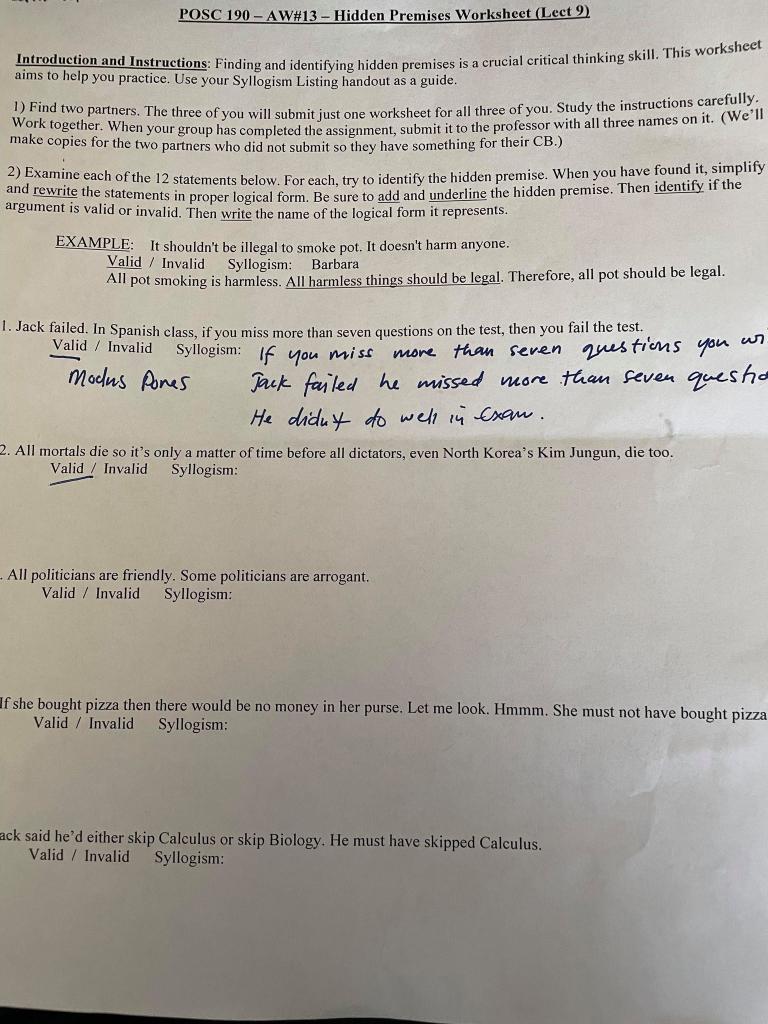 POSC 190 – AW#13 – Hidden Premises Worksheet (Lect 9)
Introduction and Instructions: Finding and identifying hidden premises is a crucial critical thinking skill. This worksheet
aims to help you practice. Use your Syllogism Listing handout as a guide.
1) Find two partners. The three of you will submit just one worksheet for all three of you. Study the instructions carefully.
Work together. When your group has completed the assignment, submit it to the professor with all three names on it. (We'll
make copies for the two partners who did not submit so they have something for their CB.)
2) Examine each of the 12 statements below. For each, try to identify the hidden premise. When you have found it, simplify
and rewrite the statements in proper logical form. Be sure to add and underline the hidden premise. Then identify if the
argument is valid or invalid. Then write the name of the logical form it represents.
EXAMPLE: It shouldn't be illegal to smoke pot. It doesn't harm anyone.
Valid / Invalid Syllogism: Barbara
All pot smoking is harmless. All harmless things should be legal. Therefore, all pot should be legal.
1. Jack failed. In Spanish class, if you miss more than seven questions on the test, then you fail the test.
Valid / Invalid Syllogism: If you miss more than seven questions you
Modus Pones Jack failed he missed more than seven
He didn't do well in Exam.
2. All mortals die so it's only a matter of time before all dictators, even North Korea's Kim Jungun, die too.
Valid / Invalid Syllogism:
. All politicians are friendly. Some politicians are arrogant.
Valid / Invalid Syllogism:
If she bought pizza then there would be no money in her purse. Let me look. Hmmm. She must not have bought pizza
Valid / Invalid Syllogism:
ack said he'd either skip Calculus or skip Biology. He must have skipped Calculus.
Valid / Invalid Syllogism: